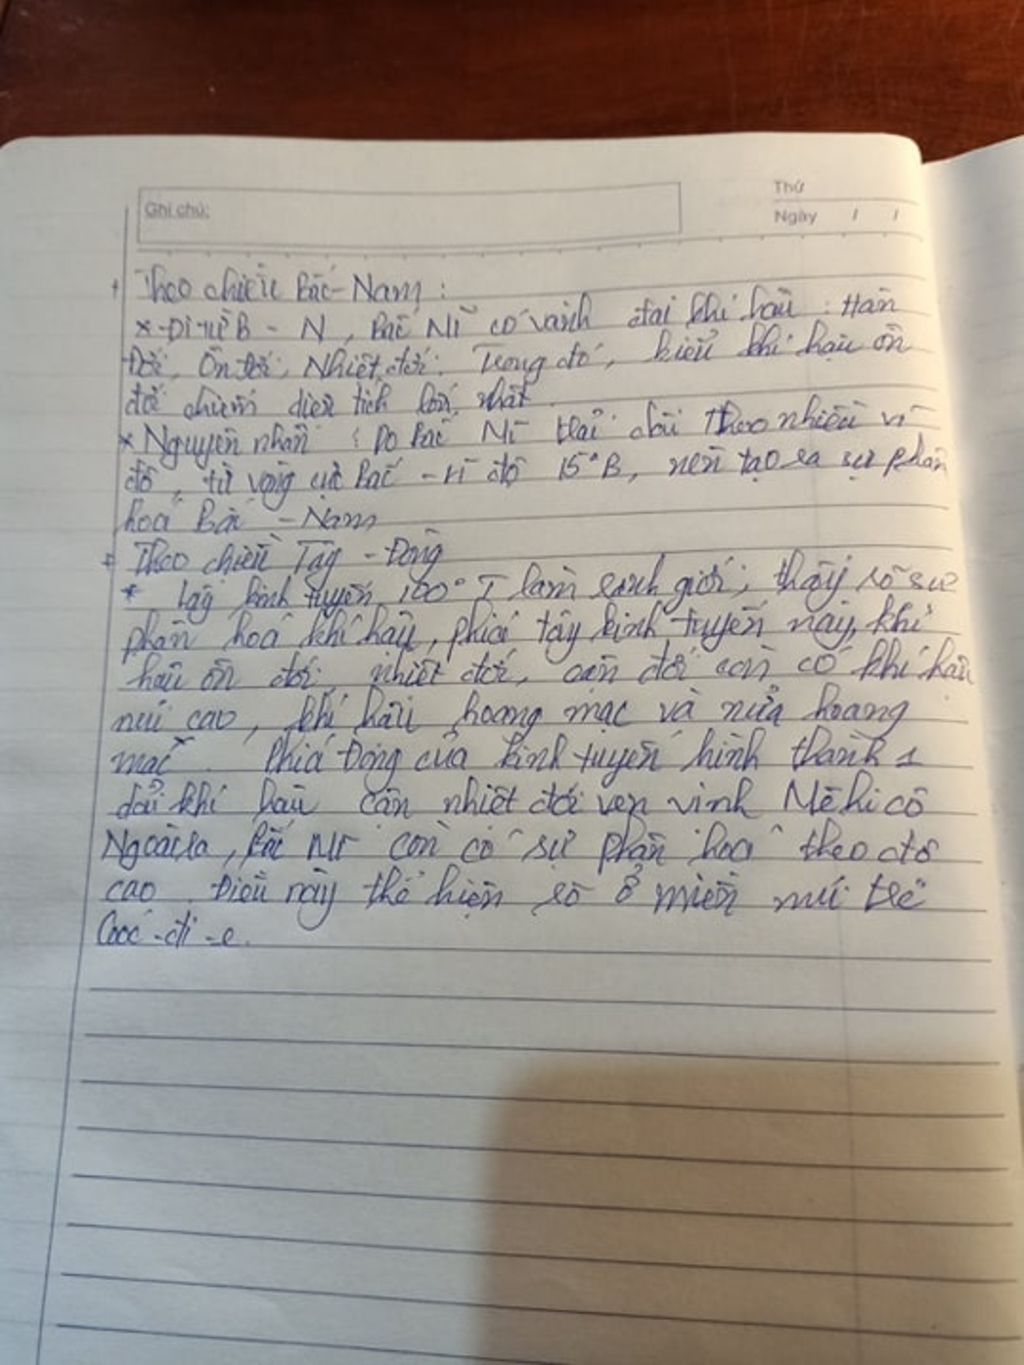 Ghi chú:
Thứ
Ngày / /
+ Theo chiều Bắc-Nam :
*-Đi từ B - N , Bắc Mĩ có vành đai khí hậu : Hàn
Đới, Ôn đới, Nhiệt đới. Trong đó, kiểu khí hậu ôn
đới chiếm diện tích lớn nhất.
* Nguyên nhân : Do Bắc Mĩ trải dài theo nhiều vĩ
độ, từ vòng cực Bắc - vĩ độ 15°B, nên tạo ra sự phân
hoá Bắc - Nam
+ Theo chiều Tây - Đông
* Lấy kinh tuyến 100°T làm ranh giới, thấy rõ sự
phân hoá khí hậu, phía tây kinh tuyến này, khí
hậu ôn đới, nhiệt đới, cận đới còn có khí hậu
núi cao, khí hậu hoang mạc và nửa hoang
mạc. Phía Đông của kinh tuyến hình thành 1
dải khí hậu cận nhiệt đới ven vịnh Mêhicô
Ngoài ra, Bắc Mĩ còn có sự phân hoá theo độ
cao. Điều này thể hiện rõ ở miền núi trẻ
Cooc-đi-e.